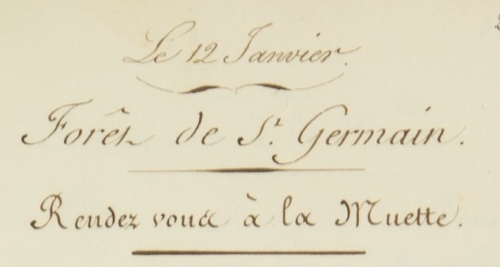 Le 12 Janvier.
Forêt de St. Germain.
Rendez vous à la Muette.